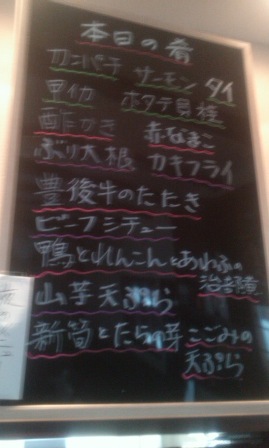 本日の肴
カンパチ サーモン タイ
甲イカ ホタテ貝柱
酢がき 赤なまこ
ぶり大根 カキフライ
豊後牛のたたき
ビーフシチュー
鴨とれんこんとあわふの
治部煮
山芋天ぷら
新筍とたらの芽 こごみの
天ぷら